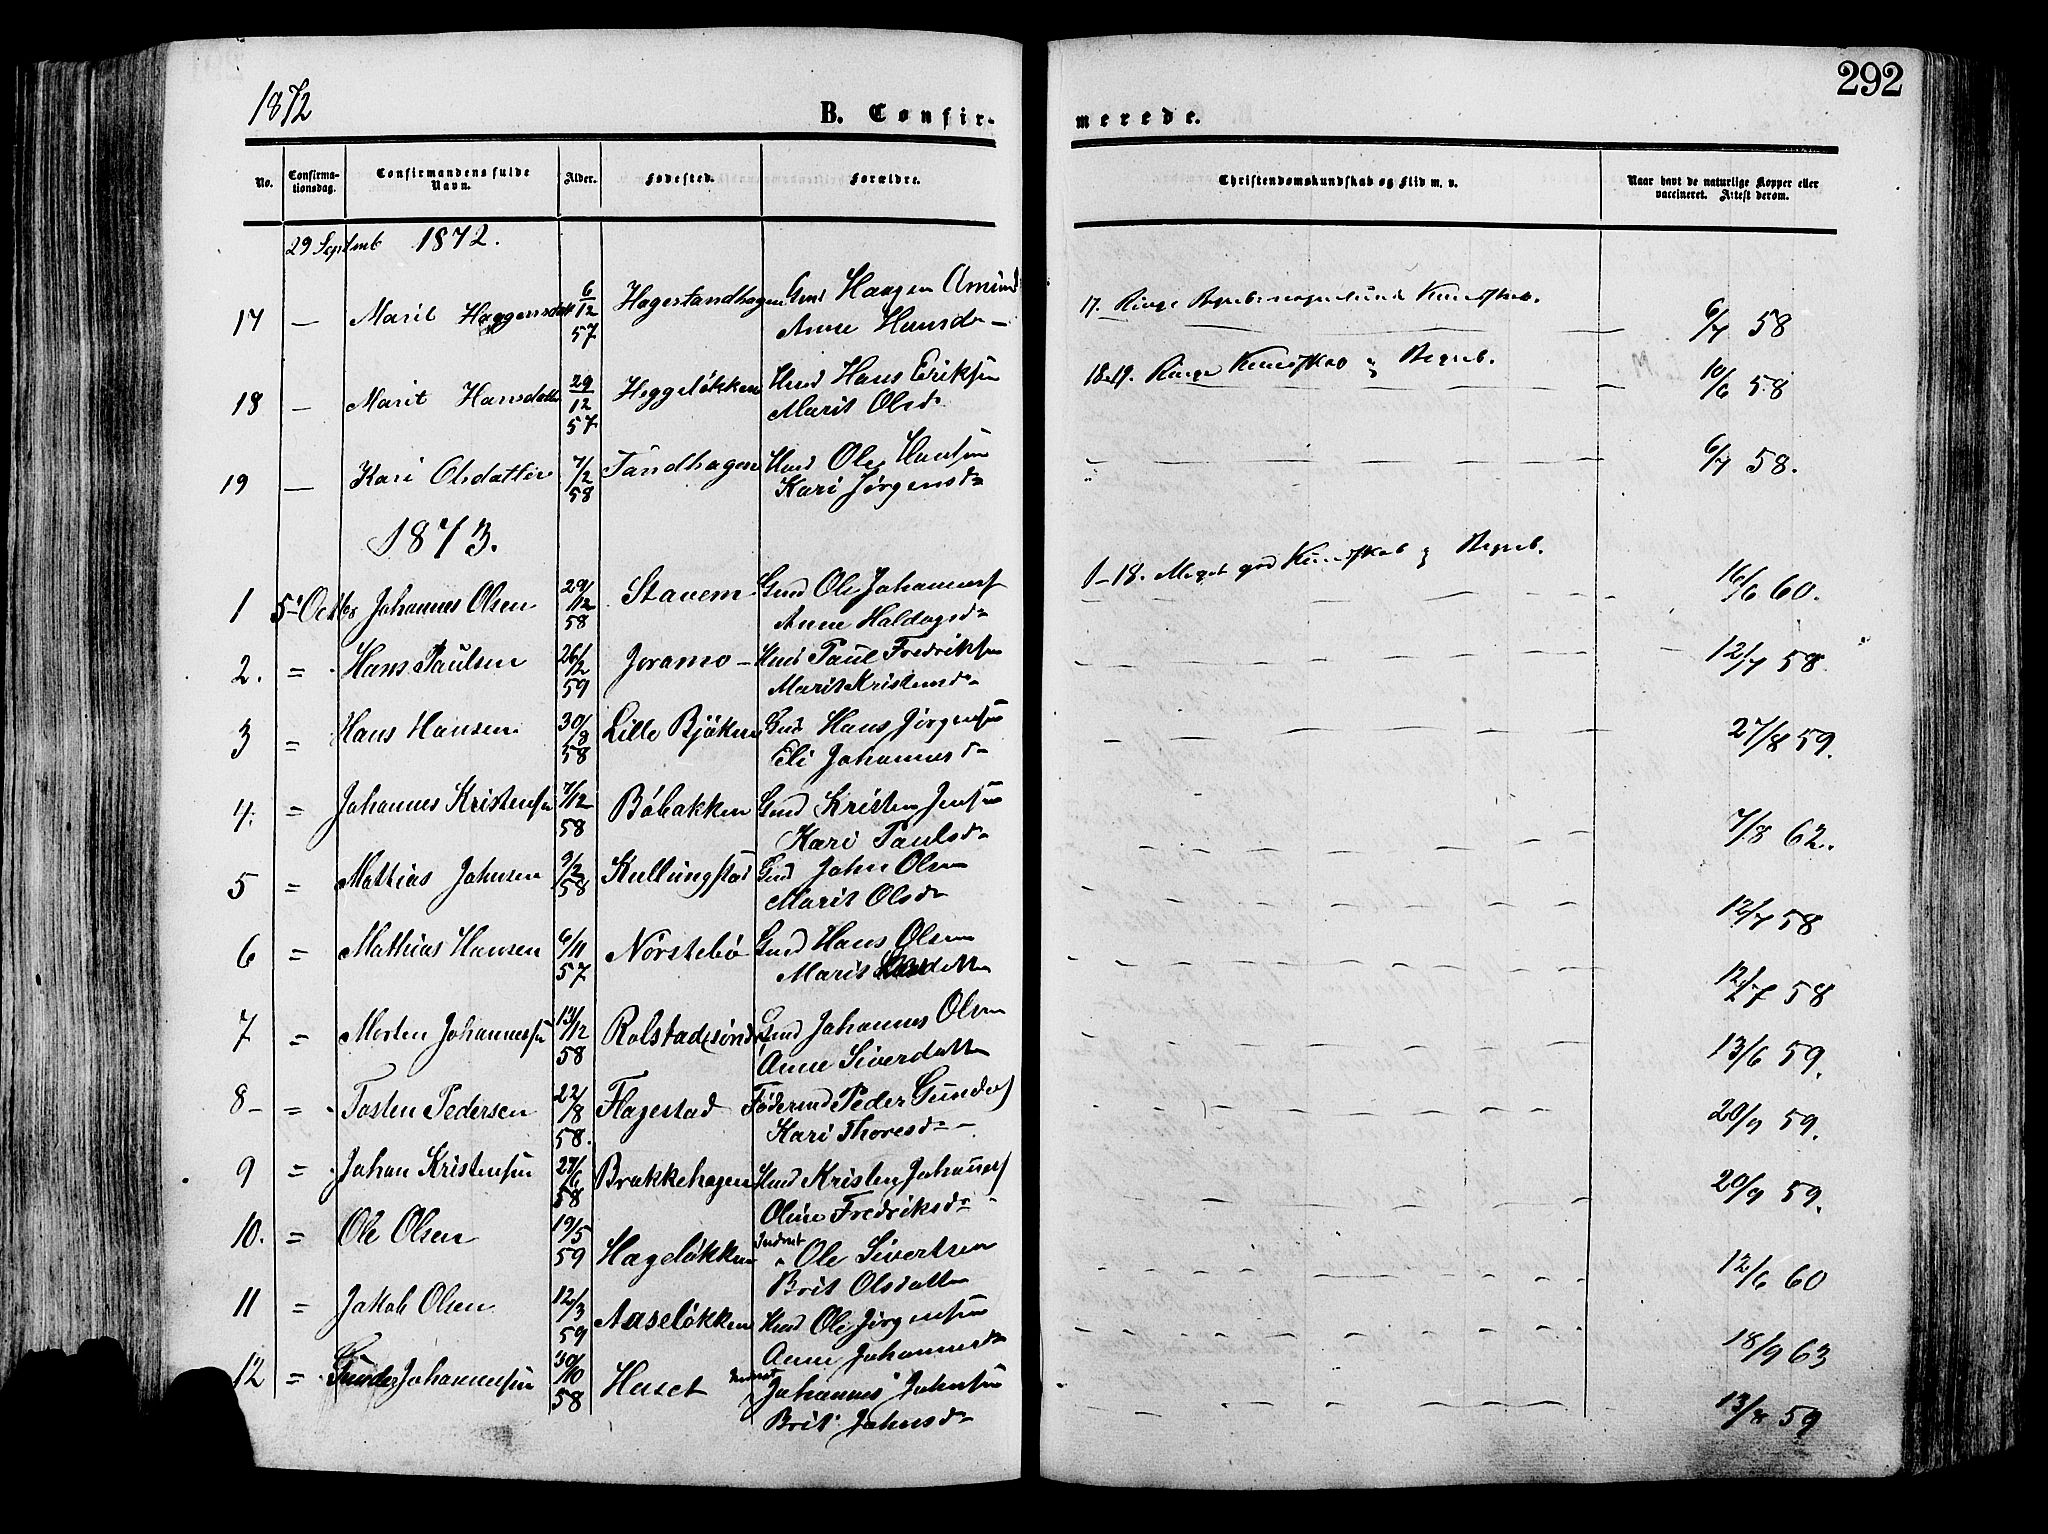 292
1872
B. Confirmerede.
No. Confirmationsdag. Confirmandens fulde Navn. Alder. Fødested. Forældre. Christendomskundskab og Flid m. v. Naar havt de naturlige Kopper eller vaccineret. Attest derom.
29 Septemb 1872.
17 — Marit Haagensdatt 6/12 57 Hagestandhagen Gmd Haagen Amund
Anne Hansd- 17. Ringe Kundskab. 6/7 58
18 — Marit Hansdatter 29/12 57 Heggeløkken Hmd Hans Eriksen
Marit Olsd- 18-19. Ringe Kundskab og Begreb. 10/6 58
19 — Kari Olsdatter 7/2 58 Tandhagen Hmd Ole Hansen
Kari Jørgensd- 6/7 58.
1873.
1 5te Octbr Johannes Olsen 29/12 58 Stavem Gmd Ole Johannes
Anne Haldogsd- 1-18. Meget god Kundskab og Begreb. 16/6 60.
2. = Hans Paulsen 26/2 59 Joramo Hmd Paul Fredriksen
Marit Kristend- 12/7 58.
3 = Hans Hansen 30/8 58 Lille Bjøken Gmd Hans Jørgensen
Eli Johannesd- 27/8 59.
4. = Johannes Kristensen 7/12 58 Bøbakken Gmd Kristen Jensen
Kari Paulsd- 7/8 62.
5 = Mathias Johnsen 9/2 58 Kullungstad Gmd John Olsen
Marit Olsd- 12/7 58
6 = Mathias Hansen 6/11 57 Nørstebø Gmd Hans Olsen
Marit 12/7 58
7 = Morten Johannessen 13/12 58 Rolstad søndre Gmd Johannes Olsen
Anne Siverdatter 13/6 59.
8 - = Tosten Pedersen 22/8 58. Flagestad Føderaad Peder Gunders
Kari Thoresd- 20/9 59.
9 = Johan Kristensen 27/6 58 Brakkehagen Hmd Kristen Johannes
Oline Fredriksd- 20/9 59.
10. = Ole Olsen 19/5 59 Hageløkken Inderst Ole Sivertsen
Brit Olsdatter 12/6 60
11 = Jakob Olsen 12/3 59 Aaseløkken Hmd Ole Jørgensen
Anne Johannesd- 18/9 63
12 = Gunder Johannessen 30/10 58 Huset Inderst Johannes Johnsen
Brit Johnsd- 13/8 59